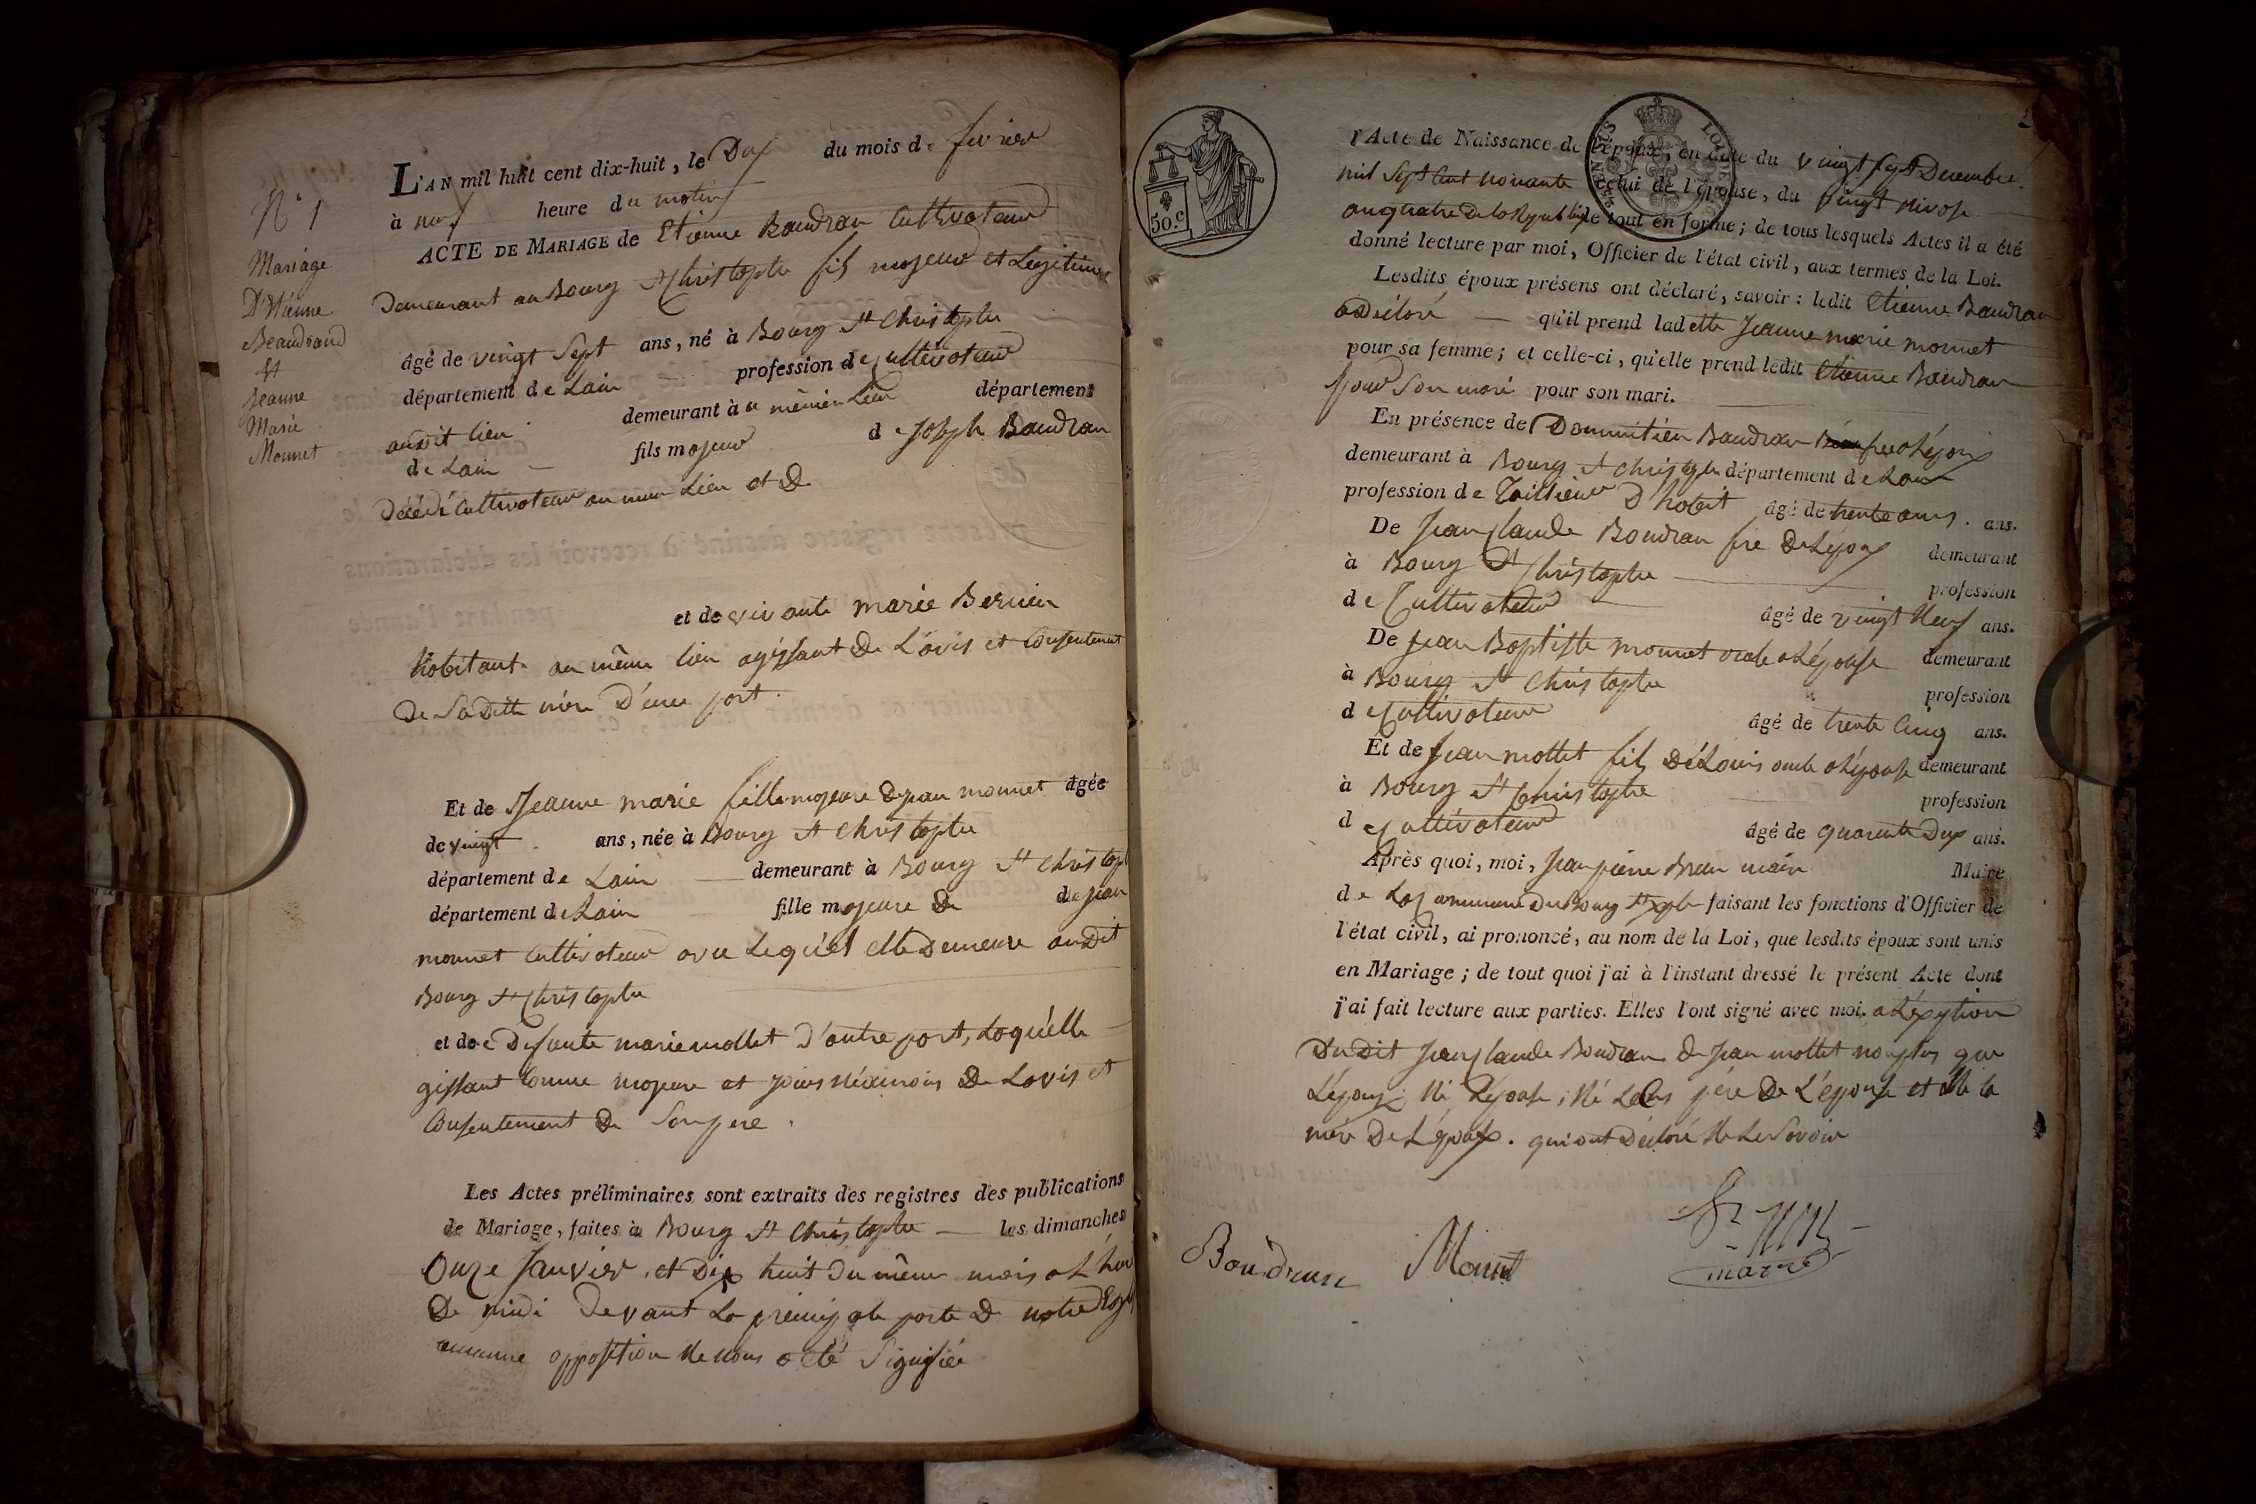 N° 1
Mariage
D'Etienne
Beaudrand
Et
Jeanne
Marie
Monnet
L'AN mil huit cent dix-huit, le Dix du mois de fevrier
à neuf heure du matin
ACTE DE MARIAGE de Etienne Baudran Cultivateur
Demeurant au Bourg St Christophe fils majeur et Legitime
âgé de vingt Sept ans, né à Bourg St Christophe
département de Lain profession de Cultivateur
audit lieu demeurant à u même Lieu département
de Lain fils majeur de Joseph Baudran
Décédé Cultivateur au meme Lieu et D
et de vivante marie Bernien
habitante au même lieu agissant De L'avis et Consentement
De Sa Ditte mère D'une part.
Et de Jeanne marie fille majeure De jean monnet âgée
de vingt ans, née à Bourg St Christophe
département de Lain demeurant à Bourg St Christop
département de Lain fille majeure De de jean
monnet Cultivateur avec Lequ'el elle Demeure audit
Bourg St Christophe
et de Defunte marie mollet D'autre part, Laqu'elle
gissant Comme majeure et De Lavis et
Consentement De Son pere.
Les Actes préliminaires sont extraits des registres des publications
de Mariage, faites à Bourg St Christophe les dimanches
Onze Janvier, et Dix huit Du même mois a L'heu
De midi Devant La principale porte D notre Egl
aucunne opposition Ne nous a été Signifiée
l'Acte de Naissance de l'époux, en date du vingt sept Decembre
mil Sept Cent nonante celui de l'épouse, du vingt nivose
an quatre De la Republique le tout en forme; de tous lesquels Actes il a été
donné lecture par moi, Officier de l'état civil, aux termes de la Loi.
Lesdits époux présens ont déclaré, savoir: ledit Etienne Baudran
a Déclaré qu'il prend ladette Jeanne marie monnet
pour sa femme; et celle-ci, qu'elle prend ledit Etienne Baudran
pour Son mari pour son mari.
En présence de Dommitien Baudran frere a Lépoux
demeurant à Bourg St Christophe département de Lain
profession de Taillieur D'habit âgé de trente ans. ans.
De Jean Claude Baudran frere De Lepoux demeurant
à Bourg St Christophe profession
de Cultivateur âgé de vingt Neuf ans.
De Jean Baptiste monnet oncle a Lépouse demeurant
à Bourg St Christophe profession
de Cultivateur âgé de trente Cinq ans.
Et de Jean mollet fils Dé Louis oncle a Lépouse demeurant
à Bourg St Christophe profession
de Cultivateur âgé de quarente Dux ans.
Après quoi, moi, Jean pierre Brun maire Maire
de La Commune Du Bourg St xphe faisant les fonctions d'Officier de
l'état civil, ai prononcé, au nom de la Loi, que lesdits époux sont unis
en Mariage; de tout quoi j'ai à l'instant dressé le présent Acte dont
j'ai fait lecture aux parties. Elles l'ont signé avec moi. a Lexception
Du Dit Jean Claude Baudran De Jean mollet non plus que
L'époux; Ni Lépouse; Ni Le pére De L'epouse et Ni la
mére De L'époux. qui ont Déclaré Ne Le Savoir
Boudran Monnet
marre
50.c